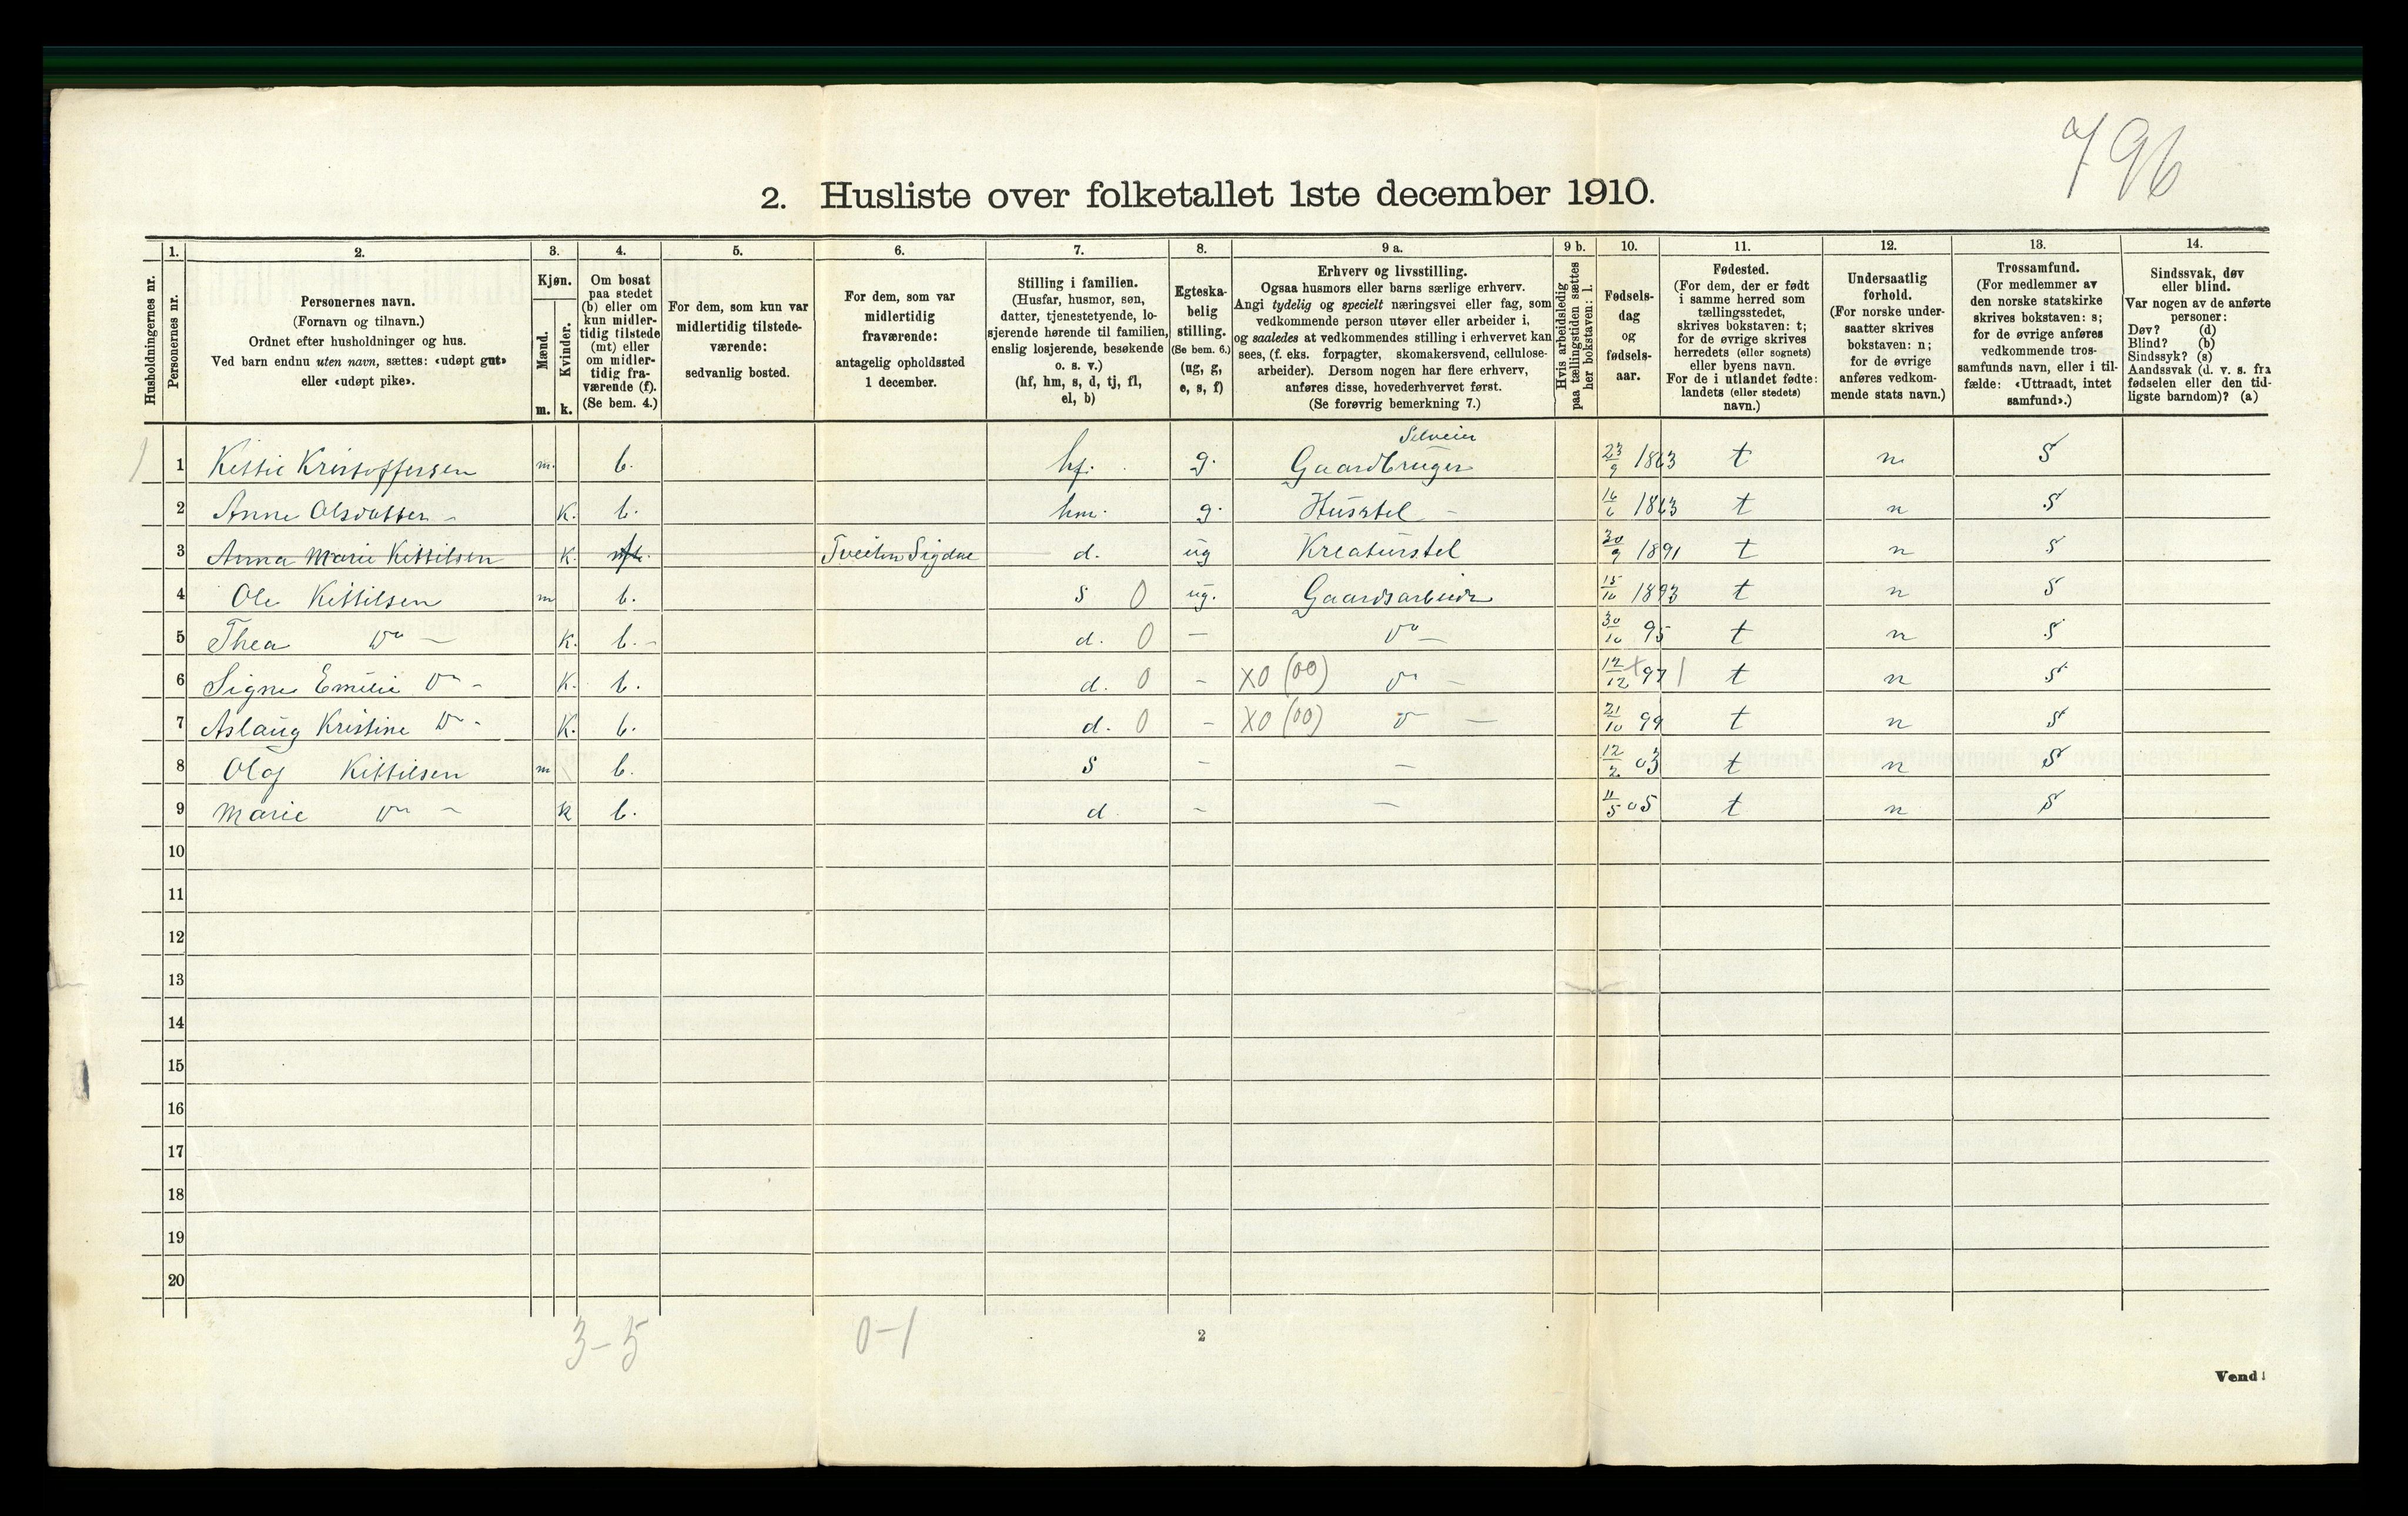 796
2. Husliste over folketallet 1ste december 1910.
Husholdningernes nr.
1. Personernes nr.
2. Personernes navn.
(Fornavn og tilnavn.)
Ordnet efter husholdninger og hus.
Ved barn endnu uten navn, sættes: «udøpt gut»
eller «udøpt pike».
3. Kjøn.
Mænd. m.
Kvinder. k.
4. Om bosat
paa stedet
(b) eller om
kun midler-
tidig tilstede
(mt) eller
om midler-
tidig fra-
værende (f).
(Se bem. 4.)
5. For dem, som kun var
midlertidig tilstede-
værende:
sedvanlig bosted.
6. For dem, som var
midlertidig
fraværende:
antagelig opholdssted
1 december.
7. Stilling i familien.
(Husfar, husmor, søn,
datter, tjenestetyende, lo-
sjerende hørende til familien,
enslig losjerende, besøkende
o. s. v.)
(hf, hm, s, d, tj, fl,
el, b)
8. Egteska-
belig
stilling.
(Se bem. 6.)
(ug, g,
e, s, f)
9 a. Erhverv og livsstilling.
Ogsaa husmors eller barns særlige erhverv.
Angi tydelig og specielt næringsvei eller fag, som
vedkommende person utøver eller arbeider i,
og saaledes at vedkommendes stilling i erhvervet kan
sees, (f. eks. forpagter, skomakersvend, cellulose-
arbeider). Dersom nogen har flere erhverv,
anføres disse, hovederhvervet først.
(Se forøvrig bemerkning 7.)
9 b. Hvis arbeidsledig
paa tællingstiden sættes
her bokstaven: l.
10. Fødsels-
dag
og
fødsels-
aar.
11. Fødested.
(For dem, der er født
i samme herred som
tællingsstedet,
skrives bokstaven: t;
for de øvrige skrives
herredets (eller sognets)
eller byens navn.
For de i utlandet fødte:
landets (eller stedets)
navn.)
12. Undersaatlig
forhold.
(For norske under-
saatter skrives
bokstaven: n;
for de øvrige
anføres vedkom-
mende stats navn.)
13. Trossamfund.
(For medlemmer av
den norske statskirke
skrives bokstaven: s;
for de øvrige anføres
vedkommende tros-
samfunds navn, eller i til-
fælde: «Uttraadt, intet
samfund».)
14. Sindssvak, døv
eller blind.
Var nogen av de anførte
personer:
Døv? (d)
Blind? (b)
Sindssyk? (s)
Aandssvak (d. v. s. fra
fødselen eller den tid-
ligste barndom)? (a)
Selveier
1 1 Kittil Kristoffersen m. b. hf. g. Gaardbruger 23/9 1863 t n s
2 Anne Olsdatter - K. b. hm. g. Husstel - 16/6 1863 t n s
3 Anna Marie Kittilsen K. Tveiten Sigdal d. ug Kreaturstel 30/9 1891 t n s
4 Ole Kittilsen m b. s 0 ug. Gaardsarbeide 15/10 1893 t n s
5 Thea Do - K. b. - d. 0 - Do - 30/10 95 t n s
6 Signe Emilie Do - K. b. d. 0 - X0 (00) Do - 12/12 97 t n s
7 Aslaug Kristine Do - K. b. d. 0 - X0 (00) Do - 21/10 99 t n s
8 Olaf Kittilsen m b. s - - 12/2 03 t n s
9 Marie Do - k b. d - - 11/5 05 t n s
10
11
12
13
14
15
16
17
18
19
20
3-5 0-1
2
Vend!